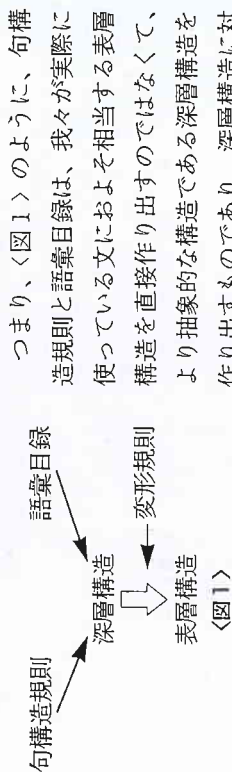 句構造規則
語彙目録
深層構造
変形規則
表層構造
〈図1〉
つまり、〈図1〉のように、句構
造規則と語彙目録は、我々が実際に
使っている文におよそ相当する表層
構造を直接作り出すのではなくて、
より抽象的な構造である深層構造を
作り出すものであり、深層構造に対